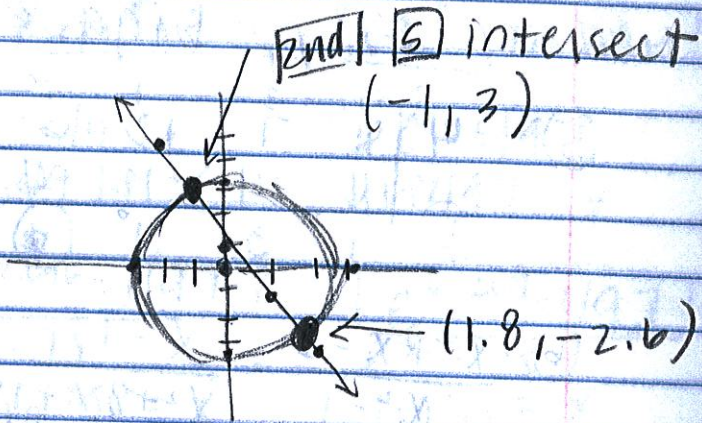 2nd 5 intersect
(-1, 3)
(1.8, -2.6)